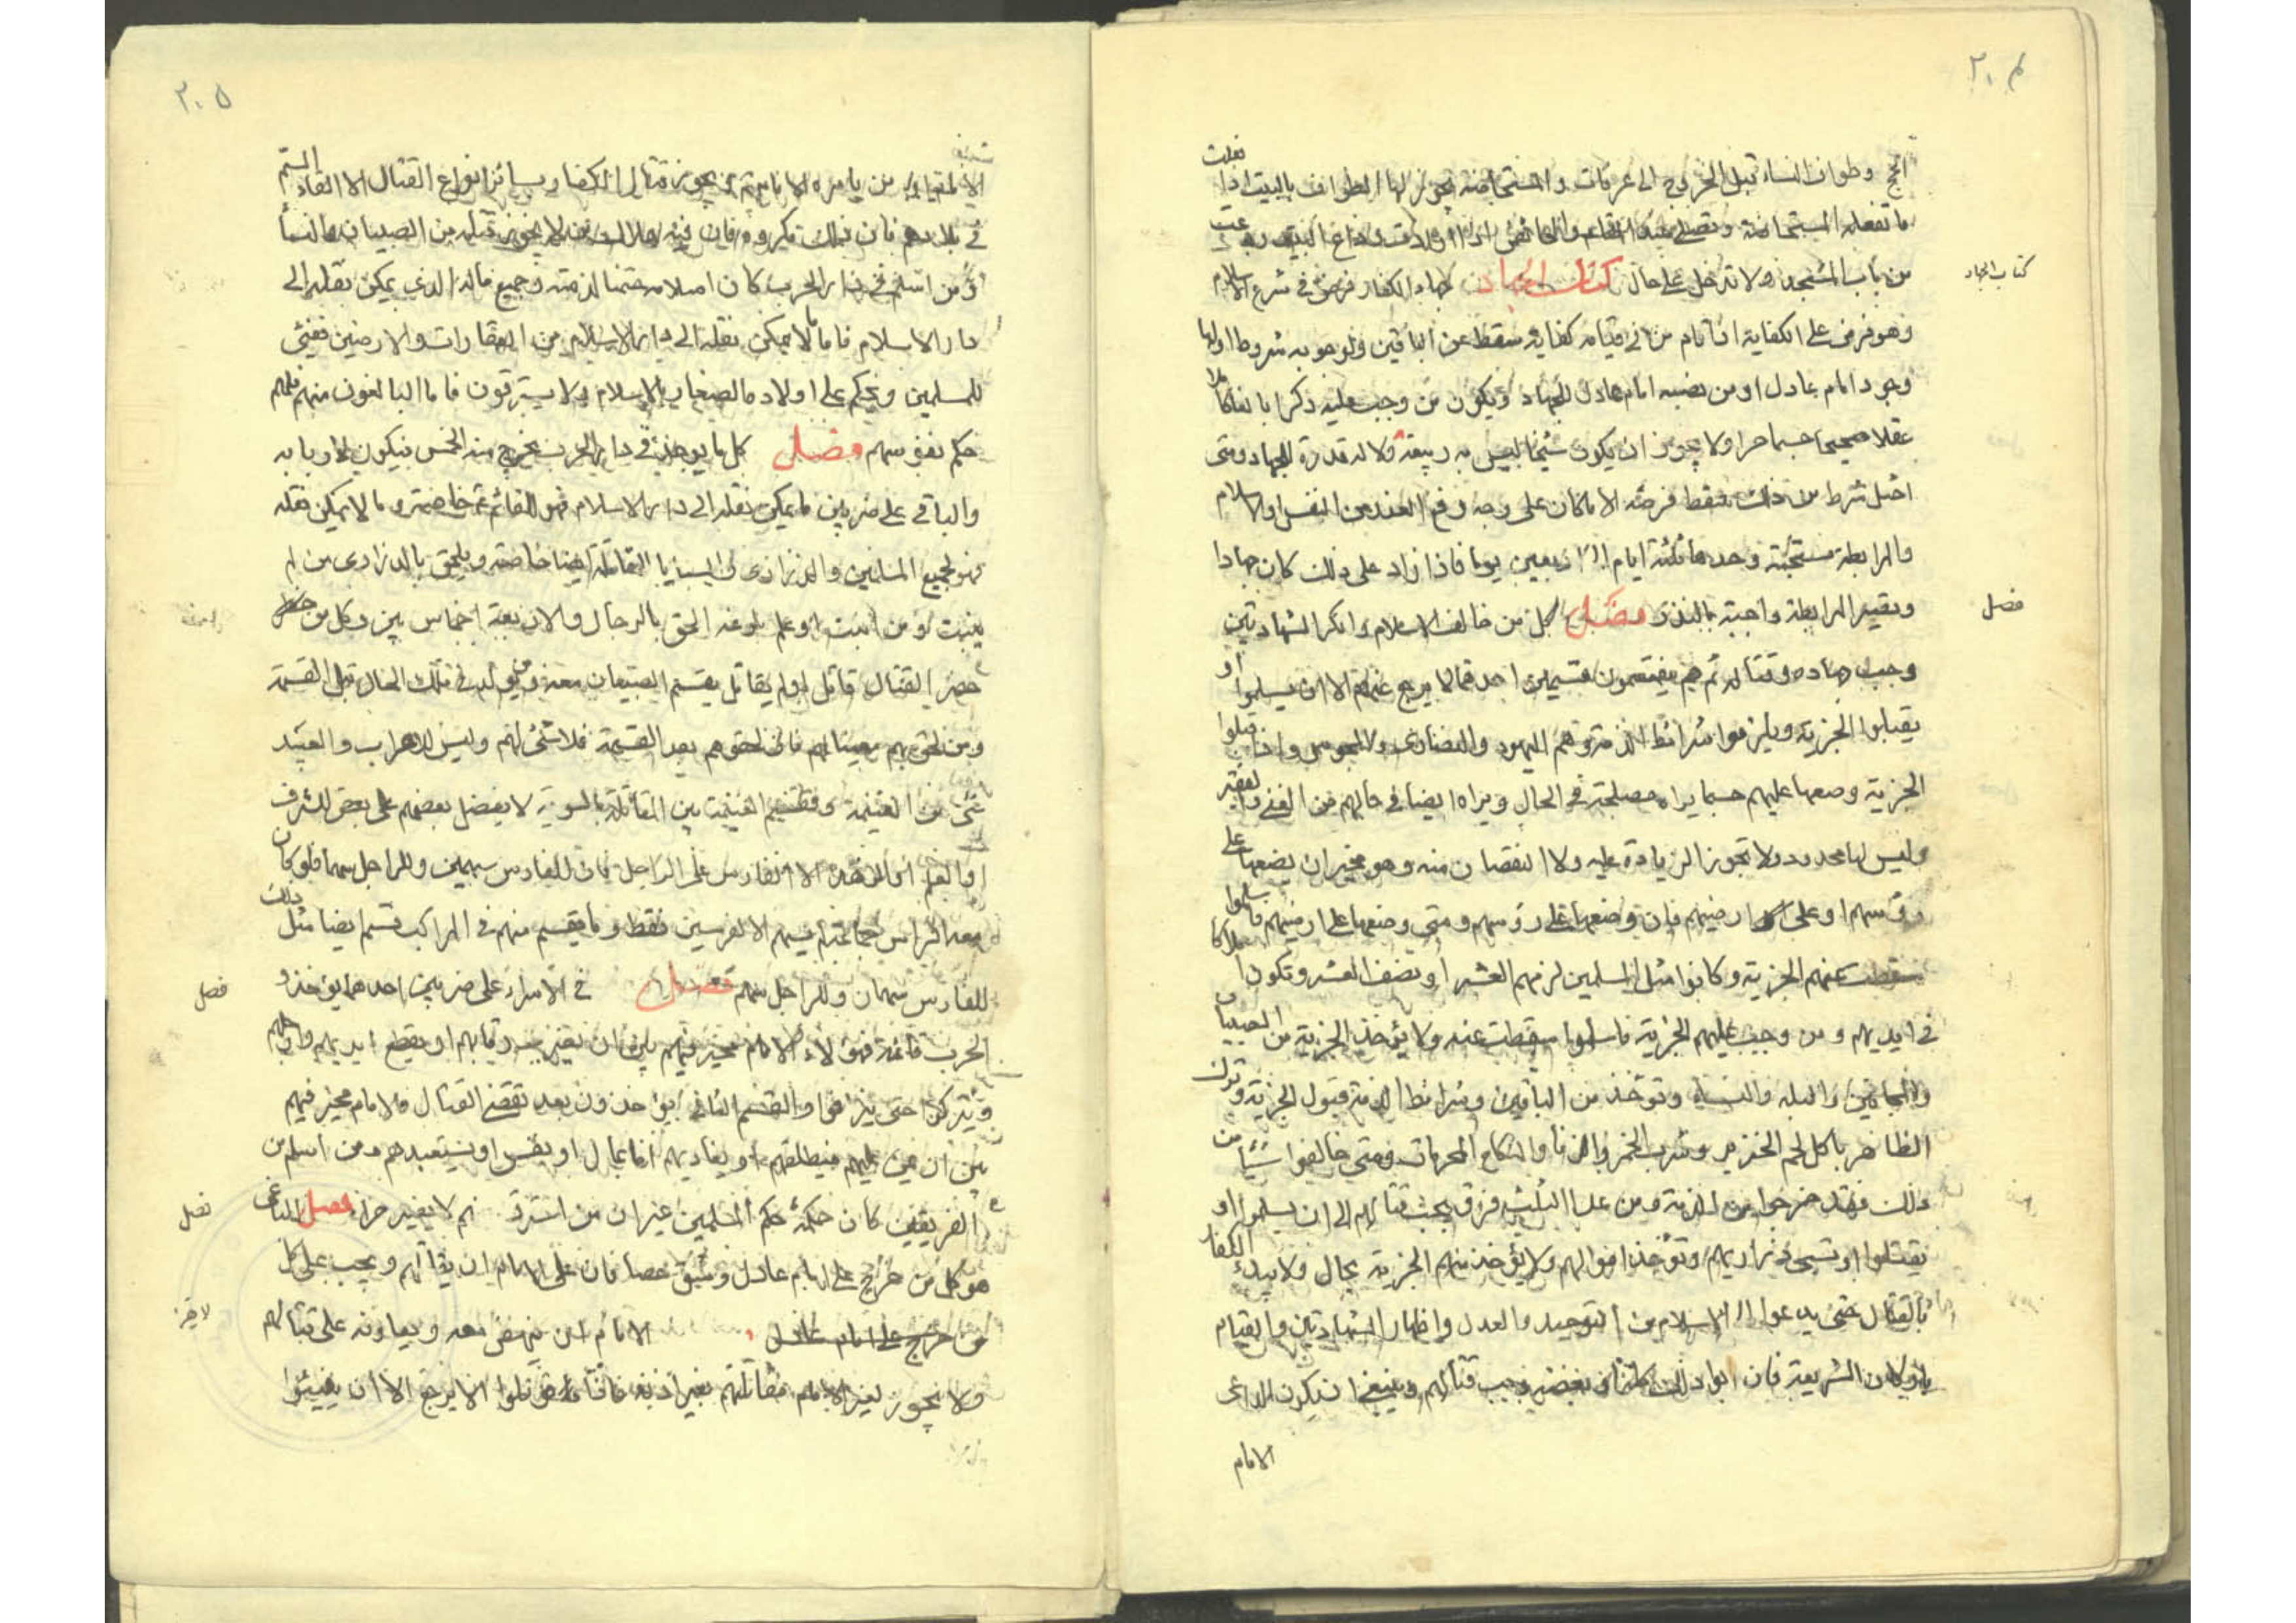 ٢٠٤
الحج وطواف النساء قبل الخروج الى عرفات والمستحاضة يجوز لها الطواف بالبيت اذا فعلت
ما تفعله المستحاضة وتصلي عند المقام والحائض اذا ارادت وداع البيت ودعت
من باب المسجد ولا تدخل على حال كتاب الجهاد جهاد الكفار فرض في شرع الاسلام
كتاب الجهاد
وهو فرض على الكفاية اذا قام من في قيامه كفاية سقط عن الباقين ولوجوبه شروط اولها
وجود امام عادل او من نصبه امام عادل للجهاد ويكون من وجب عليه ذكرا بالغا كاملا
عقلا صحيحا جسما حرا ولا يجوز ان يكون شيخا ليس به ولا له قدرة للجهاد ومتى
اختل شرط من ذلك سقط فرضه الا ما كان على وجه دفع العدو عن النفس والاسلام
والمرابطة مستحبة وحدها ثلثة ايام الى اربعين يوما فاذا زاد على ذلك كان جهادا
وتصير المرابطة واجبة بالنذر فصل كل من خالف الاسلام وانكر الشهادتين
فصل
وجب جهاده وقتاله ثم هم ينقسمون قسمين احدهما لا يرجع عنهم الا ان يسلموا او
يقبلوا الجزية ويلزموا شرائط الذمة وهم اليهود والنصارى والمجوس واذا قبلوا
الجزية وضعها عليهم حسبما يراه مصلحة في الحال ويراه ايضا في حالهم من الغنى والفقير
وليس لها حد ولا تجوز الزيادة عليه ولا النقصان منه وهو مخير ان يضعها على
رؤسهم او على ارضيهم فان وضعها على رؤسهم ومتى وضعها على ارضيهم فاسلموا
سقطت عنهم الجزية وكانوا مثل المسلمين لزمهم العشر او نصف العشر وتكون املاكا
في ايديهم ومن وجب عليهم الجزية فاسلموا سقطت عنه ولا يؤخذ الجزية من الصبيان
والمجانين والبله والنساء وتؤخذ من الباقين وشرائط الذمة قبول الجزية وترك
التظاهر باكل لحم الخنزير وشرب الخمر والزنا والنكاح المحرمات فمتى خالفوا شيئا من
ذلك فقد خرجوا من الذمة ومن عدا الثلث فرق يجب قتالهم الى ان يسلموا او
يقتلوا او تسبى ذراريهم وتؤخذ اموالهم ولا يؤخذ منهم الجزية بحال ولا يبدء الكفار
بالقتال حتى يدعوا الى الاسلام من التوحيد والعدل واظهار الشهادتين والقيام
باركان الشريعة فان ابوا ذلك كله او بعضه وجب قتالهم وينبغي ان يكون الداعي
الامام
٢٠٥
الامام او من يامره الامام ثم يجوز قتال الكفار بسائر انواع القتال الا القاء السم
في بلادهم فان ذلك مكروه فان فيه هلاك من لا يجوز قتله من الصبيان والنسا
ومن اسلم في دار الحرب كان اسلامه حقنا لدمه وجميع ماله الذي يمكن نقله الى
دار الاسلام فاما ما لا يمكن نقله الى دار الاسلام من العقارات والارضين ففيئ
للمسلمين ويحكم على اولاده الصغار بالاسلام ولا يسترقون فاما البالغون منهم فلهم
حكم نفوسهم فصل كل ما يوجد في دار الحرب يخرج منه الخمس فيكون لاربابه
والباقي على ضربين ما يمكن نقله الى دار الاسلام فهو للمقاتلة خاصة وما لا يمكن نقله
فهو لجميع المسلمين والذراري والسبايا للمقاتلة ايضا خاصة ويلحق بالذراري من لم
ينبت ومن انبت او علم بلوغه الحق بالرجال والاربعة اخماس بين كل من
حضر القتال قاتل او لم يقاتل يقسم للصبيان معه ومن يولد في تلك الحال قبل القسمة
ومن لحق بهم معينا لهم فان لحقوهم بعد القسمة فلا شئ لهم وليس للاعراب والعبيد
شئ من الغنيمة وتقسم الغنيمة بين المقاتلة بالسوية لا يفضل بعضهم على بعض لشرف
او العلم او الزهد الا الفارس على الراجل فان للفارس سهمين وللراجل سهما فلو كان
معه افراس جماعة لم يسهم الا لفرسين فقط وما يقسم منهم في المراكب قسم ايضا مثل ذلك
للفارس سهمان وللراجل سهم فصل في الاسراء على ضربين احدهما يؤخذ و
فصل
الحرب قائمة فهؤلاء الامام مخير فيهم بين ان يضرب رقابهم او يقطع ايديهم وارجلهم
ويتركوا حتى ينزفوا والقسم الثاني يؤخذون بعد تقضي القتال فالامام مخير فيهم
بين ان يمن عليهم فيطلقهم او يفاديهم اما بمال او بنفس او يستعبدهم ومن اسلم من
الفريقين كان حكمه حكم المسلمين غير ان من استرق لم لا يصير حرا فصل الباغي
فصل
هو كل من خرج على امام عادل وشق عصا فان على الامام ان يقاتلهم ويجب على كل
من خرج على امام عادل الامام ان ينهض معه ويعاونه على قتالهم
ولا يجوز لغير الامام مقاتلتهم بغير اذنه فاذا قوتلوا لا يرجع الا ان يفيئوا